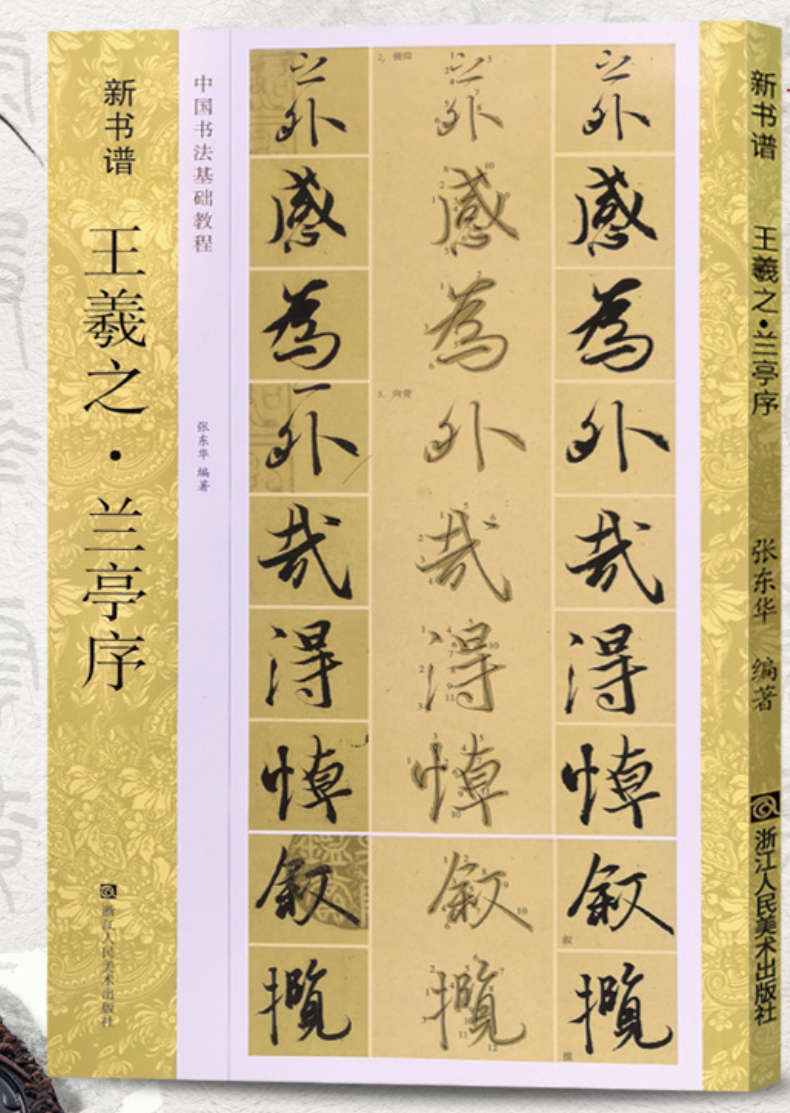 新书谱
王羲之·兰亭序
浙江人民美术出版社
中国书法基础教程
张东华 编著
之
外
感
為
外
哉
得
悼
叙
揽
2、俯仰
之
外
感
為
3、向背
外
哉
得
悼
叙
揽
之
外
感
為
外
哉
得
悼
叙
叙
揽
揽
新书谱
王羲之·兰亭序
张东华 编著
浙江人民美术出版社